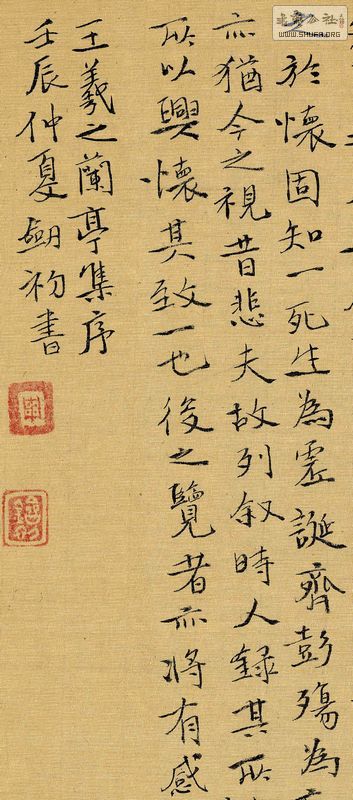 於懷固知一死生為虛誕齊彭殤為
亦猶今之視昔悲夫故列叙時人錄其所
所以興懷其致一也後之覽者亦將有感
王羲之蘭亭集序
壬辰仲夏劍初書
WWW.SHUFA.ORG